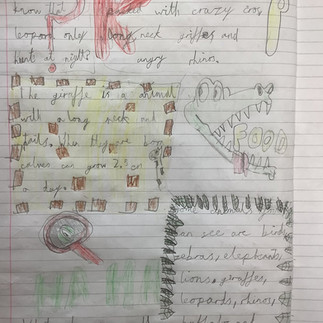 know that packed with crazy crocs,
leopard only long neck giffes and
hunt at night? angry rhinos.
The giraffe is a animal
with a long neck and
tails. When they are born
calves can grow 2.5 cm
a day.
FOOD
HA HA
an see are birds
zebras, elephants
lions, giraffes,
leopards, rhinos,